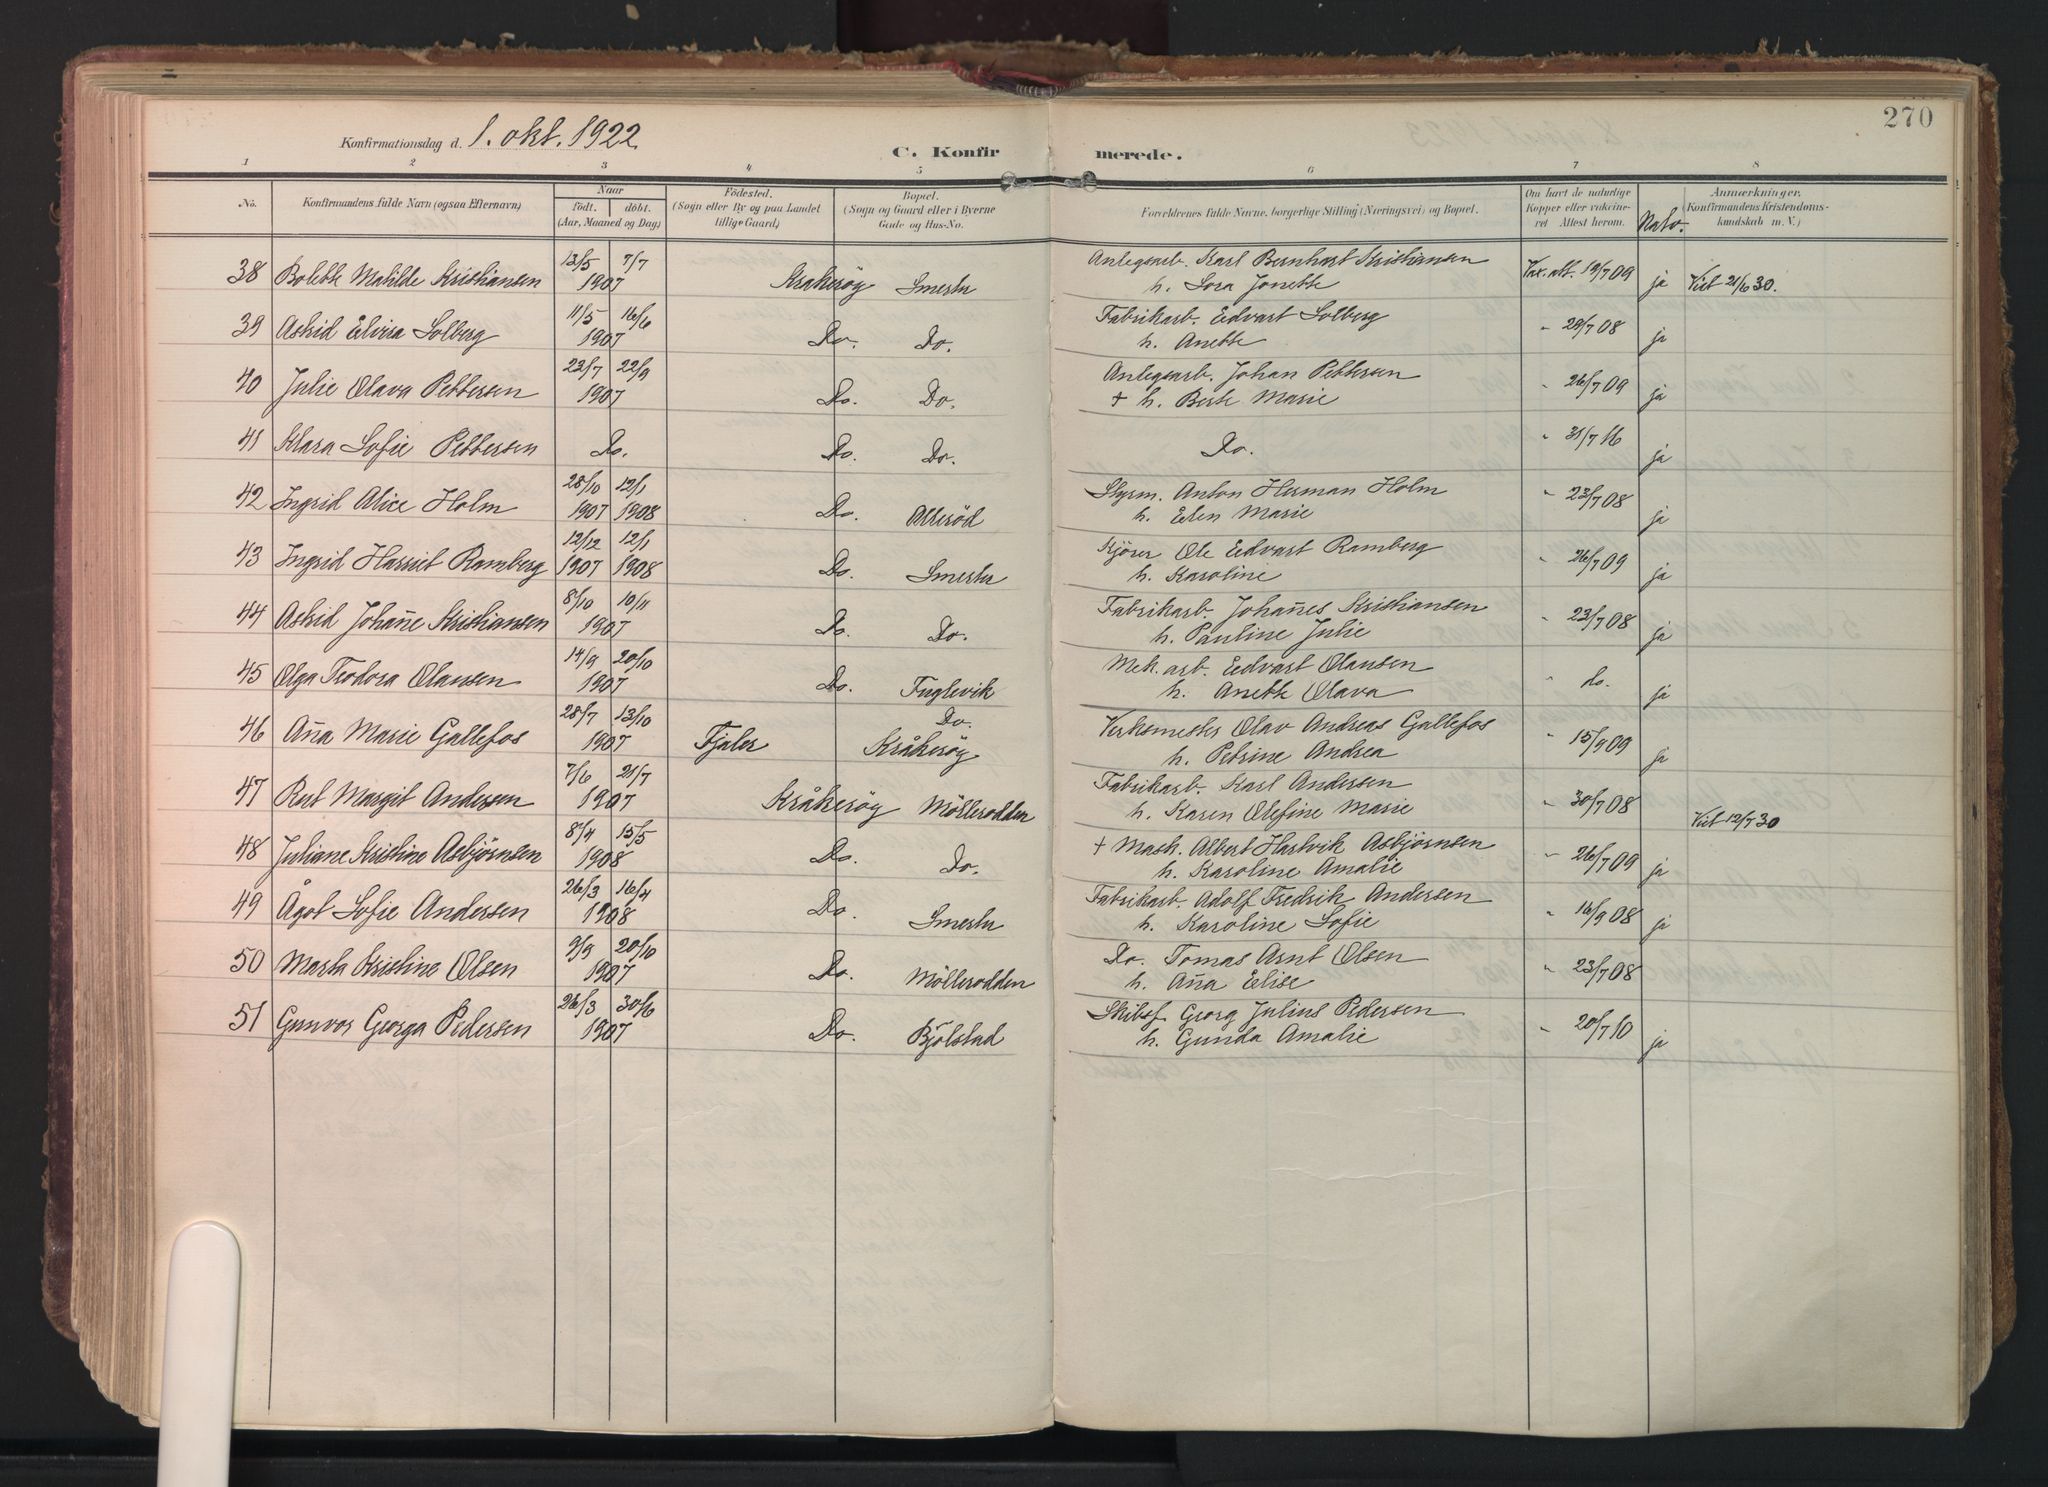 270
Konfirmationsdag d. 1. okt. 1922
C. Konfirmerede.
1 2 3 4 5 6 7 8
No. Konfirmandens fulde Navn (ogsaa Efternavn) Naar født. døbt. (Aar, Maaned og Dag) Fødested. (Sogn eller By og paa Landet tillige Gaard) Bopæl. (Sogn og Gaard eller i Byerne Gade og Hus-No. Forældrenes fulde Navne, borgerlige Stilling (Næringsvei) og Bopæl. Om havt de naturlige Kopper eller vakcineret. Attest herom. Anmærkninger. (Konfirmandens Kristendomskundskab m. V.)
38 Bolette Mathilde Kristiansen 13/5 7/7 1907 Kråkerøy Smertu Anlegsarb. Karl Bernhart Kristiansen Vax. att. 19/7 09 ja Viet 21/6 30.
h. Lora Jonette
39 Astrid Elvira Solberg 11/5 16/6 1907 Do. Do. Fabrikarb. Edvart Solberg " 28/7 08 ja
h. Anette
40 Julie Olava Pettersen 23/7 22/9 1907 Do. Do. Anlegsarb. Johan Pettersen " 26/7 09 ja
+ h. Berte Marie
41 Klara Sofie Pettersen Do. Do. Do. Do. " 31/7 16 ja
42 Ingrid Alice Holm 28/10 1907 12/1 1908 Do. Allerød Styrm. Anton Herman Holm " 23/7 08 ja
h. Elen Marie
43 Ingrid Harriet Ramberg 12/12 1907 12/1 1908 Do. Smertu Kjører Ole Edvart Ramberg " 26/7 09 ja
h. Karoline
44 Astrid Johan̄e Kristiansen 8/10 10/11 1907 Do. Do. Fabrikarb. Johan̄es Kristiansen " 23/7 08 ja
h. Pauline Julie
45 Olga Teodora Olausen 14/9 20/10 1907 Do. Fuglevik Mek. arb. Edvart Olausen " do. ja
h. Anette Olava
46 An̄a Marie Gallefos 28/7 13/10 1907 Fjaler Do. Kråkerøy Verksmester Olav Andreas Gallefos " 15/9 09 ja
h. Petrine Andrea
47 Rut Margit Andersen 7/6 21/7 1907 Kråkerøy Møllerodden Fabrikarb. Karl Andersen " 30/7 08 Viet 12/7 30
h. Karen Olefine Marie
48 Juliane Kristine Asbjørnsen 8/4 15/5 1908 Do. Do. + Mask. Albert Hartvik Asbjørnsen " 26/7 09 ja
h. Karoline Amalie
49 Ågot Sofie Andersen 26/3 16/4 1908 Do. Smertu Fabrikarb. Adolf Fredrik Andersen " 16/9 08 ja
h. Karoline Sofie
50 Marta Kristine Olsen 9/9 20/10 1907 Do. Møllerodden Do. Tomas Arnt Olsen " 23/7 08
h. An̄a Elise
51 Gunvor Georga Pedersen 26/3 30/6 1907 Do. Bjølstad Skibsf. Georg Julius Pedersen " 20/7 10 ja
h. Gunda Amalie